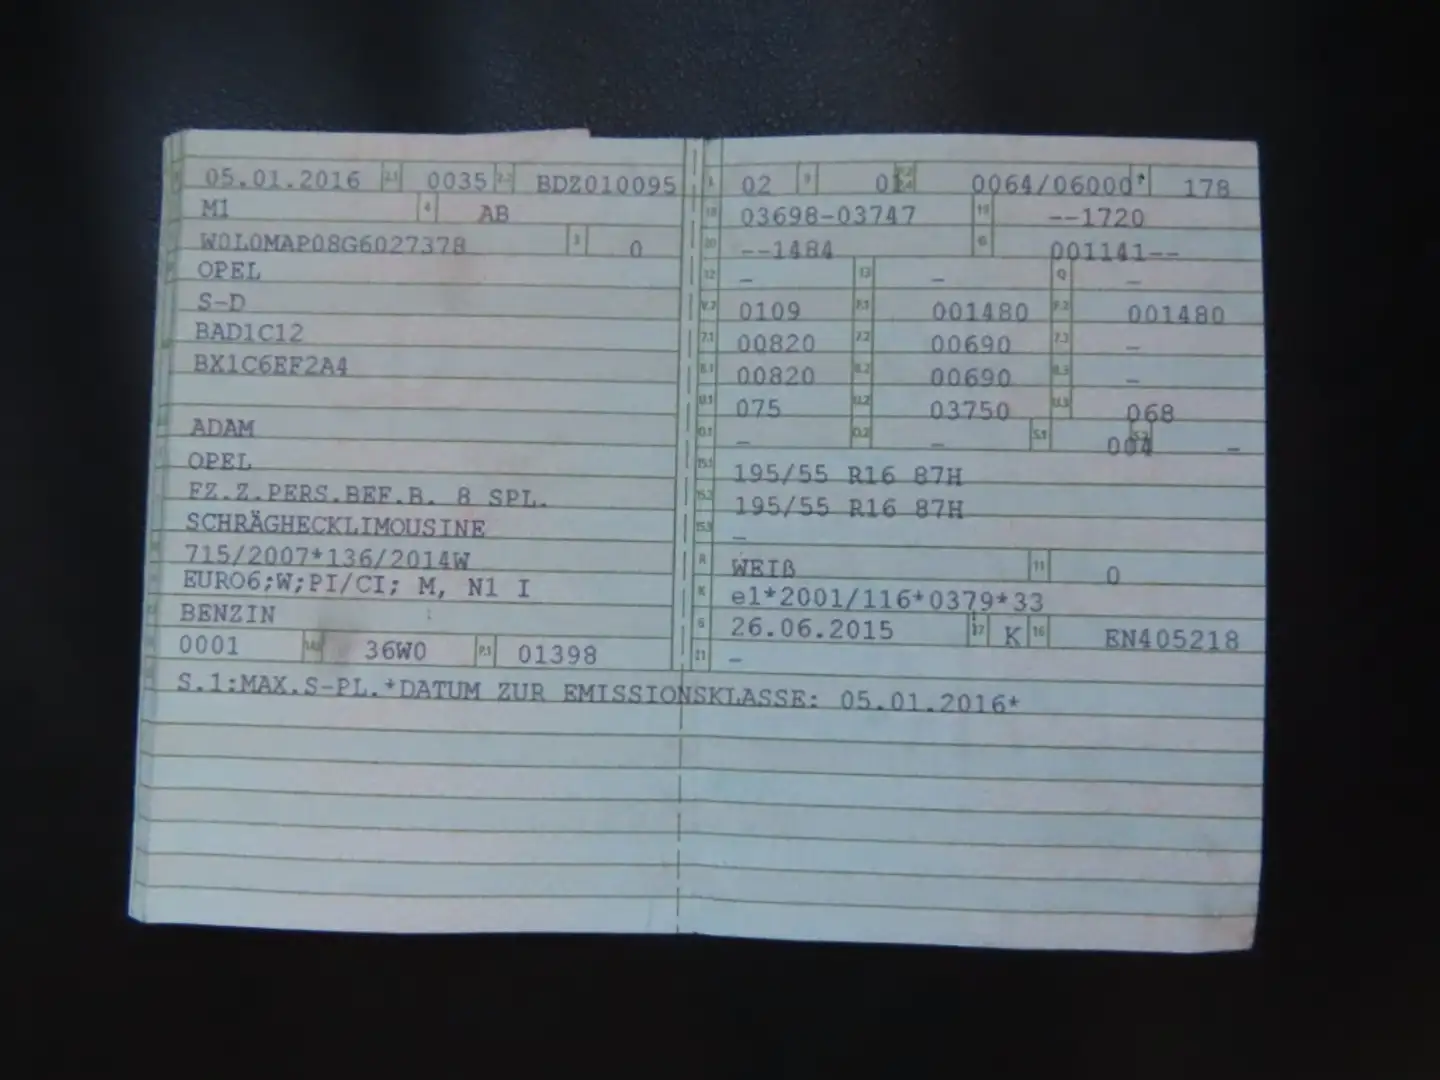 05.01.2016 2.1 0035 2.2 BDZ010095
M1 4 AB
W0L0MAP08G6027378 3 0
OPEL
S-D
BAD1C12
BX1C6EF2A4
ADAM
OPEL
FZ.Z.PERS.BEF.B. 8 SPL.
SCHRÄGHECKLIMOUSINE
715/2007*136/2014W
EURO6;W;PI/CI; M, N1 I
BENZIN
0001 36W0 P.1 01398
L 02 9 0 P.2 P.4 0064/06000 T 178
18 03698-03747 19 --1720
20 --1484 G 001141--
12 - 13 - Q -
V.7 0109 F.1 001480 F.2 001480
7.1 00820 7.2 00690 7.3 -
8.1 00820 8.2 00690 8.3 -
U.1 075 U.2 03750 U.3 068
O.1 - O.2 - S.1 004 S.2 -
15.1 195/55 R16 87H
15.2 195/55 R16 87H
15.3 -
R WEIß 11 0
K e1*2001/116*0379*33
6 26.06.2015 17 K 16 EN405218
21 -
S.1:MAX.S-PL.*DATUM ZUR EMISSIONSKLASSE: 05.01.2016*